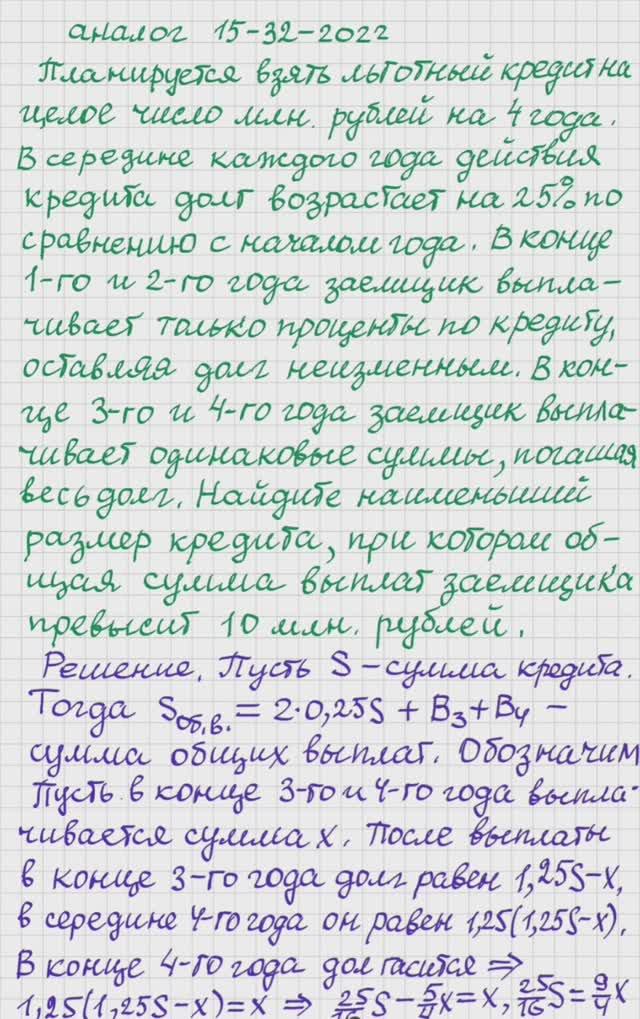 аналог 15-32-2022
Планируется взять льготный кредит на
целое число млн. рублей на 4 года.
В середине каждого года действия
кредита долг возрастает на 25% по
сравнению с началом года. В конце
1-го и 2-го года заемщик выпла-
чивает только проценты по кредиту,
оставляя долг неизменным. В кон-
це 3-го и 4-го года заемщик выпла-
чивает одинаковые суммы, погашая
весь долг. Найдите наименьший
размер кредита, при котором об-
щая сумма выплат заемщика
превысит 10 млн. рублей.
Решение. Пусть S - сумма кредита.
Тогда Sоб.в. = 2·0,25S + B₃ + B₄ -
сумма общих выплат. Обозначим
Пусть в конце 3-го и 4-го года выпла-
чивается сумма x. После выплаты
в конце 3-го года долг равен 1,25S-x,
в середине 4-го года он равен 1,25(1,25S-x).
В конце 4-го года долг гасится ⇒
1,25(1,25S-x)=x ⇒ 25/16 S - 5/4 x = x, 25/16 S = 9/4 x